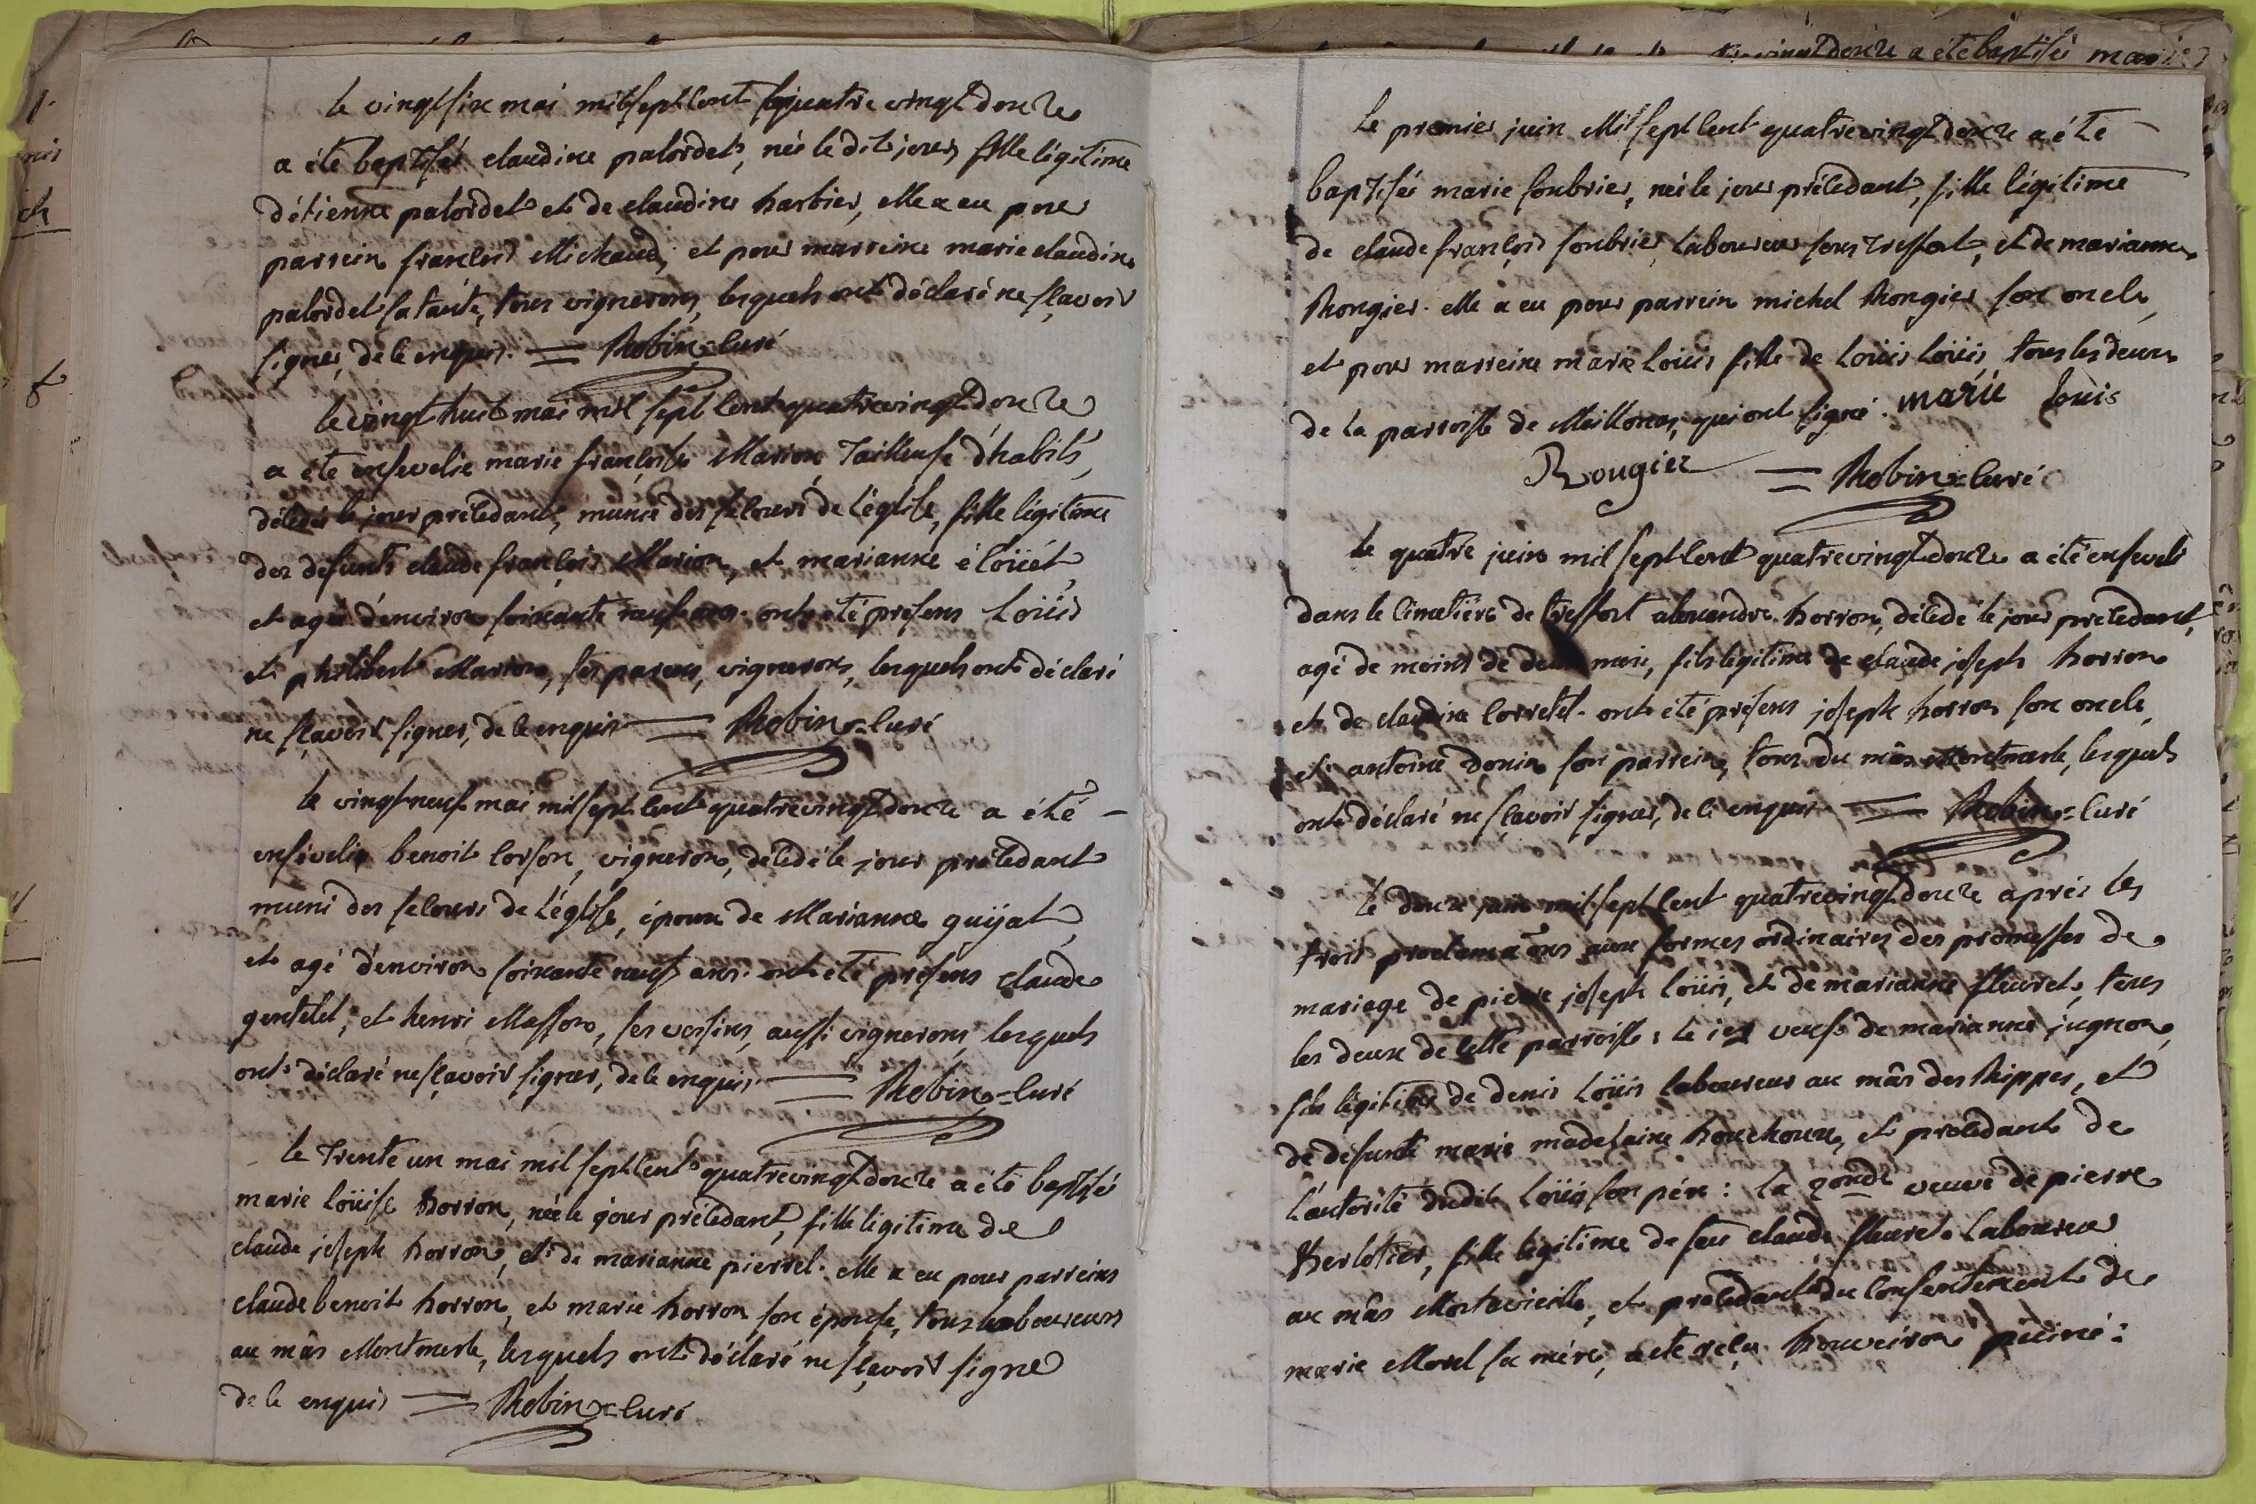 le vingt six mai mil sept cent quatre vingt douze
a été baptisée claudine palordet, née le dit jour, fille légitime
d'étienne palordet et de claudine barbier, elle a eu pour
parrein françois Michaud, et pour marreine marie claudine
palordet sa tante, tous vignerons, lesquels ont déclaré ne sçavoir
signer, de ce enquis. = Robin = Curé
le vingt huit mai mil sept cent quatre vingt douze
a été ensevelie marie françoise Marion Tailleuse d'habits,
décédée le jour précédant, munie des secours de l'église, fille légitime
des defunts claude françois Marion, et marianne éloüét,
et agée d'environ soixante neuf ans. ont été présens Loüis
et philibert Marion, ses parens, vignerons, lesquels ont déclaré
ne sçavoir signer, de ce enquis = Robin = Curé
le vingt neuf mai mil sept cent quatre vingt douze a été
enseveli benoit corson, vigneron, décédé le jour précédant
muni des secours de l'église, époux de Marianne guÿat,
et agé d'environ soixante neuf ans. ont été présens claude
gentelet, et henri Masson, ses voisins, aussi vignerons, lesquels
ont déclaré ne sçavoir signer, de ce enquis = Robin = Curé
le Trente un mai mil sept cent quatre vingt douze a été baptisée
marie loüise horron, née le jour précédant, fille légitime de
claude joseph horron, et de marianne pierrel. elle a eu pour parreins
claude benoit horron, et marie horron son épouse, tous laboureurs
au mâs Montmerle, lesquels ont déclaré ne sçavoir signer
de ce enquis = Robin = Curé
vingt douze a été baptisée marie
le premier juin Mil sept cent quatre vingt douze a été
baptisée marie soubrier, née le jour précédant, fille légitime
de claude françois soubrier, laboureur sous Treffort, et de marianne
Rongier. elle a eu pour parrein michel Rongier son oncle,
et pour marreine marie Loüis fille de Loüis Loüis, tous les deux
de la parroisse de Meillonas, qui ont signé. marie louis
Rougier = Robin = Curé
le quatre juin mil sept cent quatre vingt douze a été enseveli
dans le Cimetière de treffort alexandre horron, décédé le jour précédant,
agé de moins de deux mois, fils légitime de claude joseph horron
et de claudine Corretel. ont été présens joseph horron son oncle,
et antoine Donin son parrein, tous du mâs Montmerle, lesquels
ont déclaré ne sçavoir signer, de ce enquis = Robin = Curé
le douze juin mil sept cent quatre vingt douze après les
trois proclamaons aux formes ordinaires des promesses de
mariage de pierre joseph loüis, et de marianne fleuret, tous
les deux de cette parroisse: le 1er veuf de marianne jugnon,
fils légitime de denis Loüis laboureur au mâs des Rippes, et
de defunte marie madelaine houchoux, et procédant de
l'autorité dudit Loüis son père: la 2onde veuve de pierre
Kerlotier, fille légitime de feu claude fleuret laboureur
au mâs Montevieille, et procédant du consentement de
marie Morel sa mère, acte reçu Rouveiron puiné: